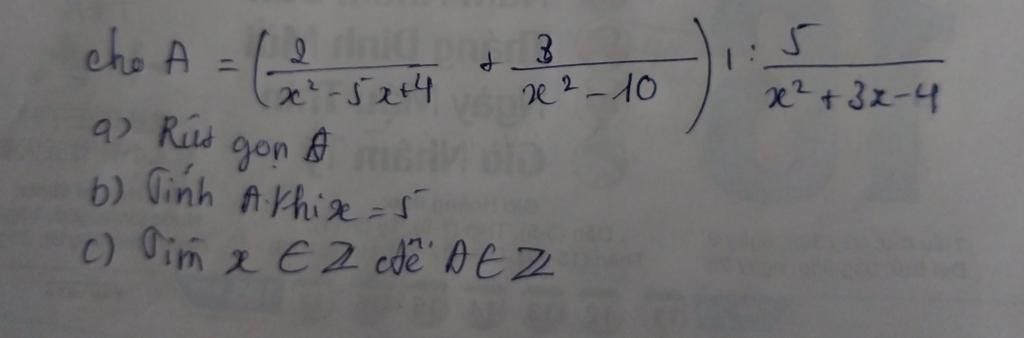 cho A = (2/(x² - 5x+4) + 3/(x² - 10)) : 5/(x² + 3x - 4)
a) Rút gọn A
b) Tính A khi x = 5
c) Tìm x ∈ Z để A ∈ Z